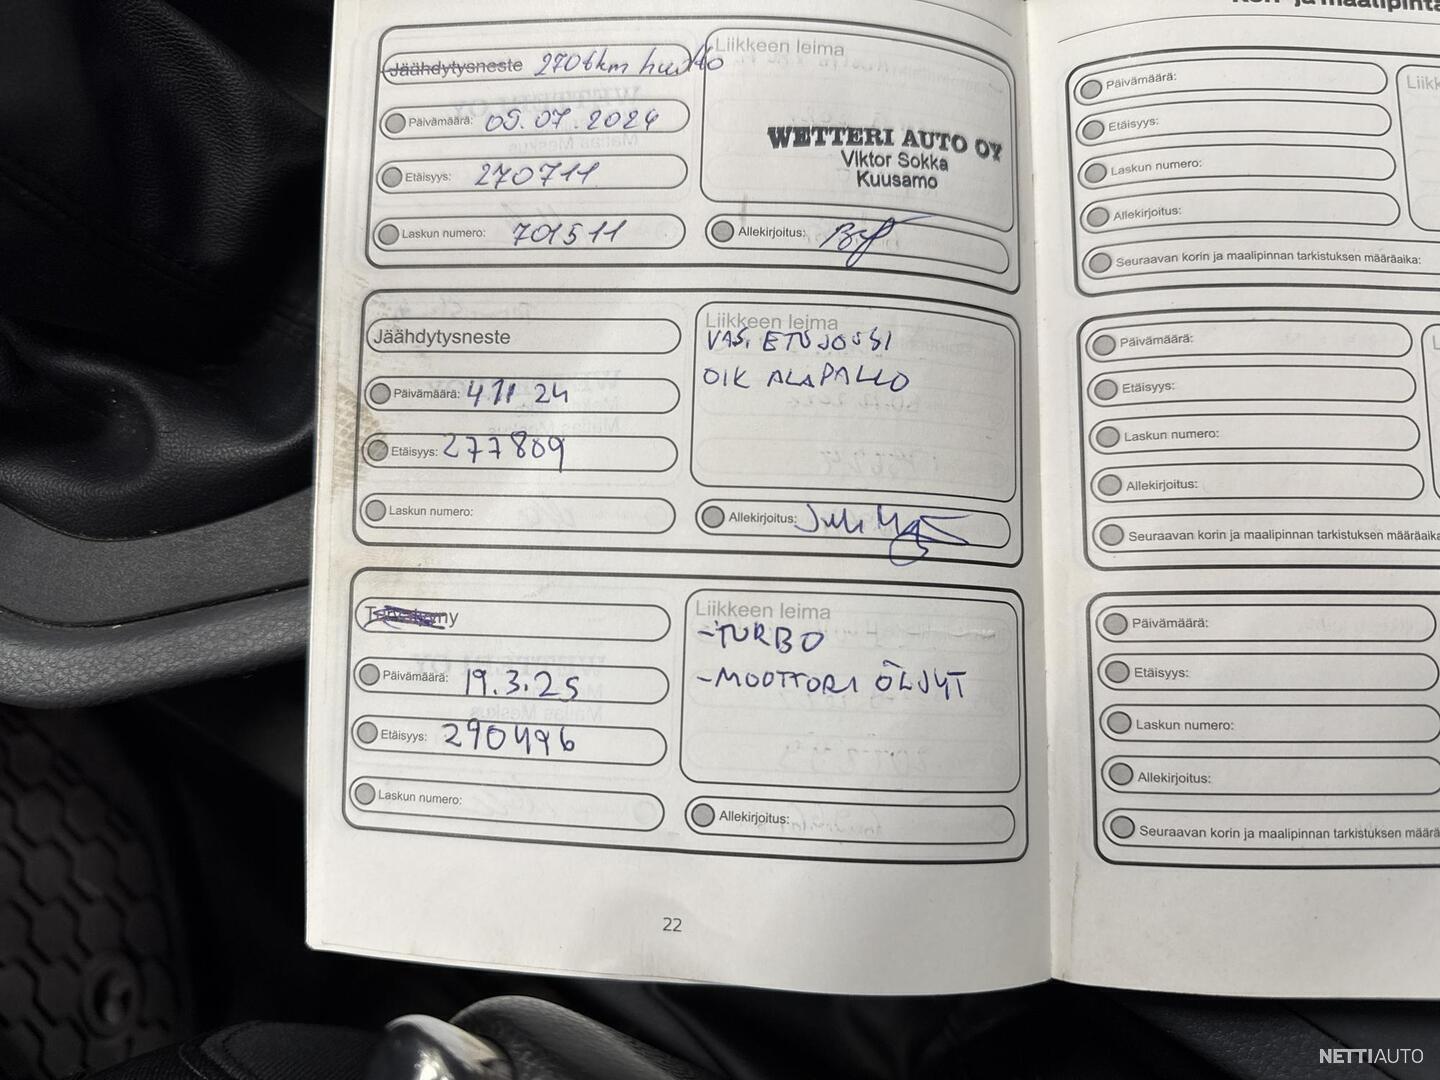 Jäähdytysneste 270tkm huolto
Päivämäärä: 05.07.2024
Etäisyys: 270711
Laskun numero: 701511
Liikkeen leima
WETTERI AUTO OY
Viktor Sokka
Kuusamo
Allekirjoitus:
Jäähdytysneste
Päivämäärä: 4 11 24
Etäisyys: 277809
Laskun numero:
Liikkeen leima
VAS. ETUJOUSI
OIK ALAPALLO
Allekirjoitus:
Päivämäärä: 19.3.25
Etäisyys: 290496
Laskun numero:
Liikkeen leima
-TURBO
-MOOTTORI ÖLJYT
Allekirjoitus:
22
Päivämäärä:
Etäisyys:
Laskun numero:
Allekirjoitus:
Seuraavan korin ja maalipinnan tarkistuksen määräaika:
Päivämäärä:
Etäisyys:
Laskun numero:
Allekirjoitus:
Seuraavan korin ja maalipinnan tarkistuksen määräaika
Päivämäärä:
Etäisyys:
Laskun numero:
Allekirjoitus:
Seuraavan korin ja maalipinnan tarkistuksen määrä
NETTIAUTO